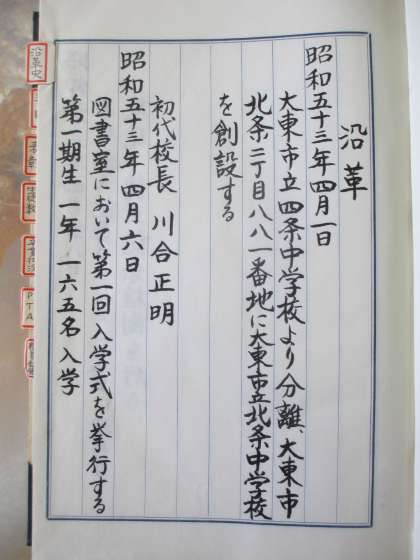 沿革
昭和五十三年四月一日
大東市立四条中学校より分離、大東市
北条二丁目八八一番地に大東市立北条中学校
を創設する
初代校長 川合正明
昭和五十三年四月六日
図書室において第一回入学式を挙行する
第一期生 一年 一六五名入学
沿革史
PTA